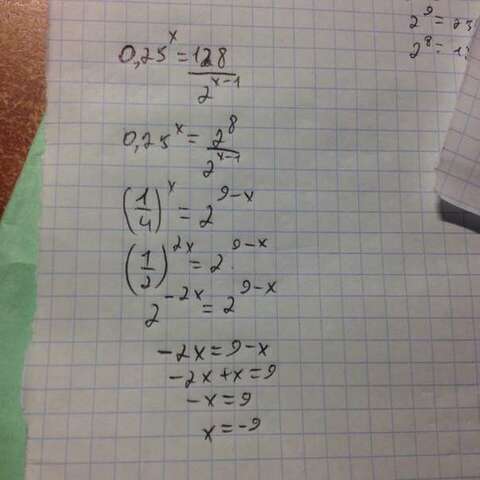 2^9 =
2^8 =
0,25^x = 128/2^(x-1)
0,25^x = 2^8/2^(x-1)
(1/4)^x = 2^(9-x)
(1/2)^(2x) = 2^(9-x)
2^(-2x) = 2^(9-x)
-2x = 9-x
-2x+x = 9
-x = 9
x = -9